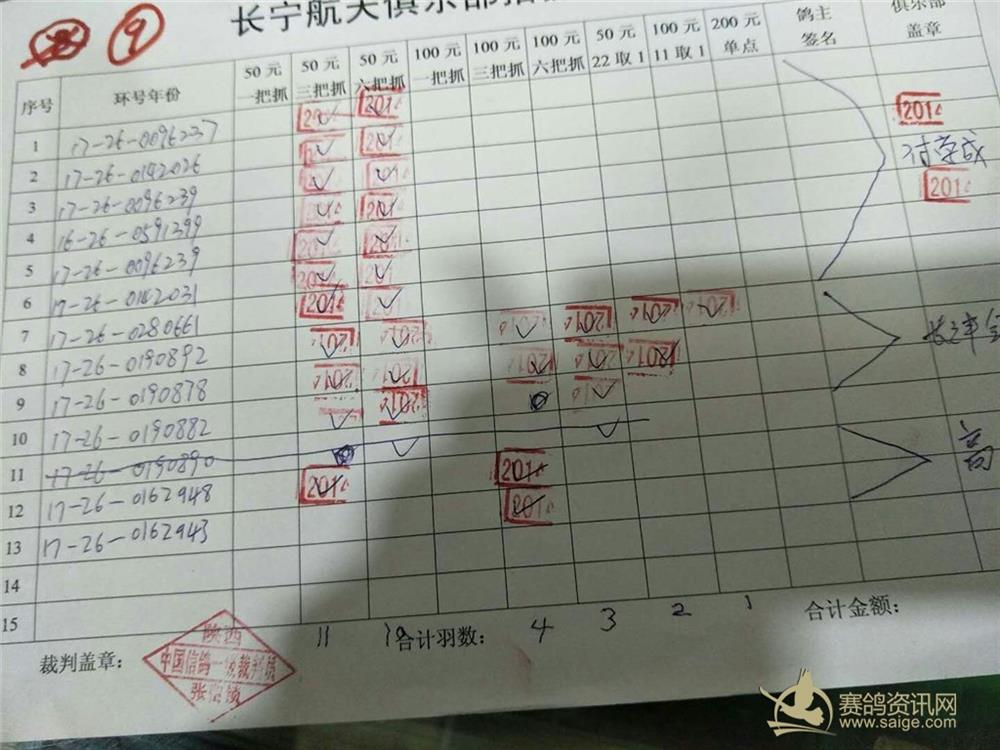 9
长宁航天俱乐部指
序号 环号年份 50元一把抓 50元三把抓 50元六把抓 100元一把抓 100元三把抓 100元六把抓 50元22取1 100元11取1 200元单点 鸽主签名 俱乐部盖章
1 17-26-0096237
2 17-26-0142026
3 17-26-0096239
4 16-26-0591399
5 17-26-0096239
6 17-26-0142031
7 17-26-0280661
8 17-26-0190892
9 17-26-0190878
10 17-26-0190882
11 17-26-0190890
12 17-26-0162948
13 17-26-0162943
14
15
裁判盖章： 11 10 合计羽数： 4 3 2 1 合计金额：
陕西
中国信鸽一级裁判员
赛鸽资讯网
www.saige.com